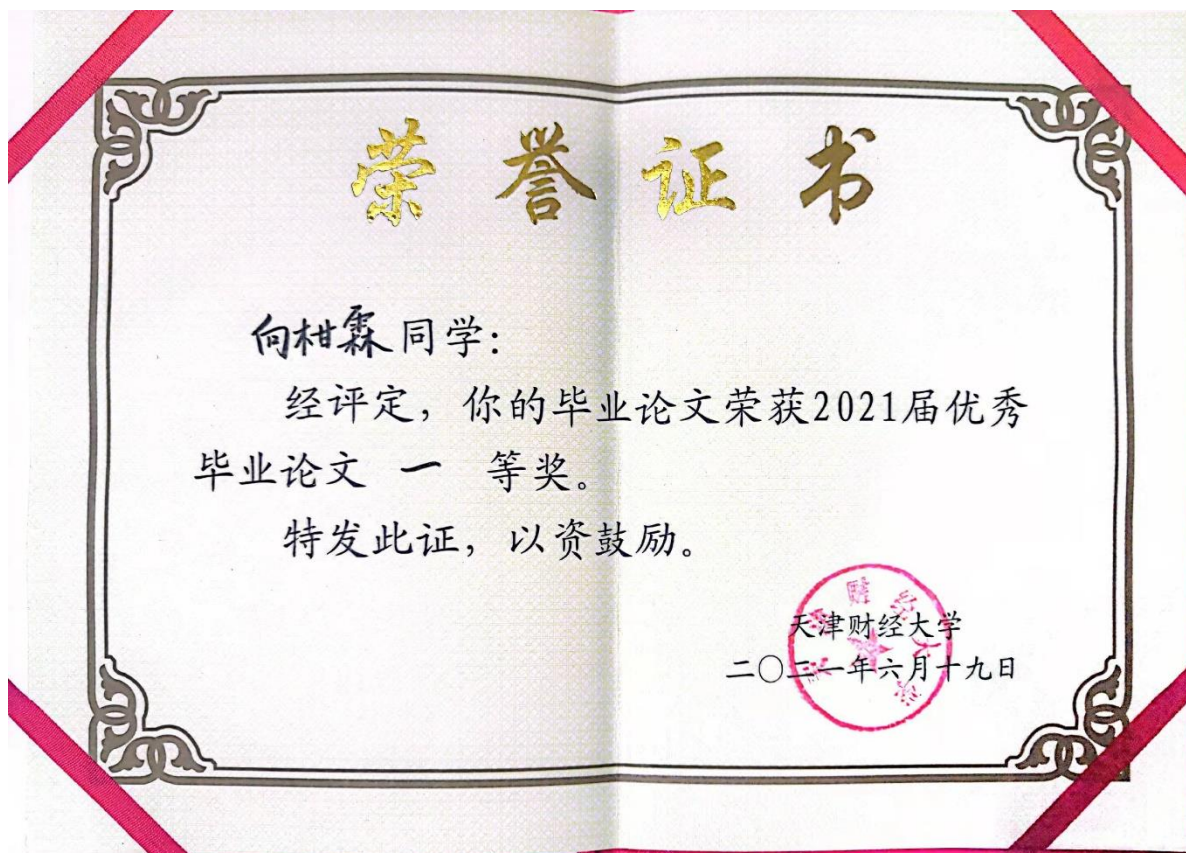 荣誉证书
向柑霖同学:
经评定，你的毕业论文荣获2021届优秀
毕业论文 一 等奖。
特发此证，以资鼓励。
天津财经大学
天津财经大学
二〇二一年六月十九日